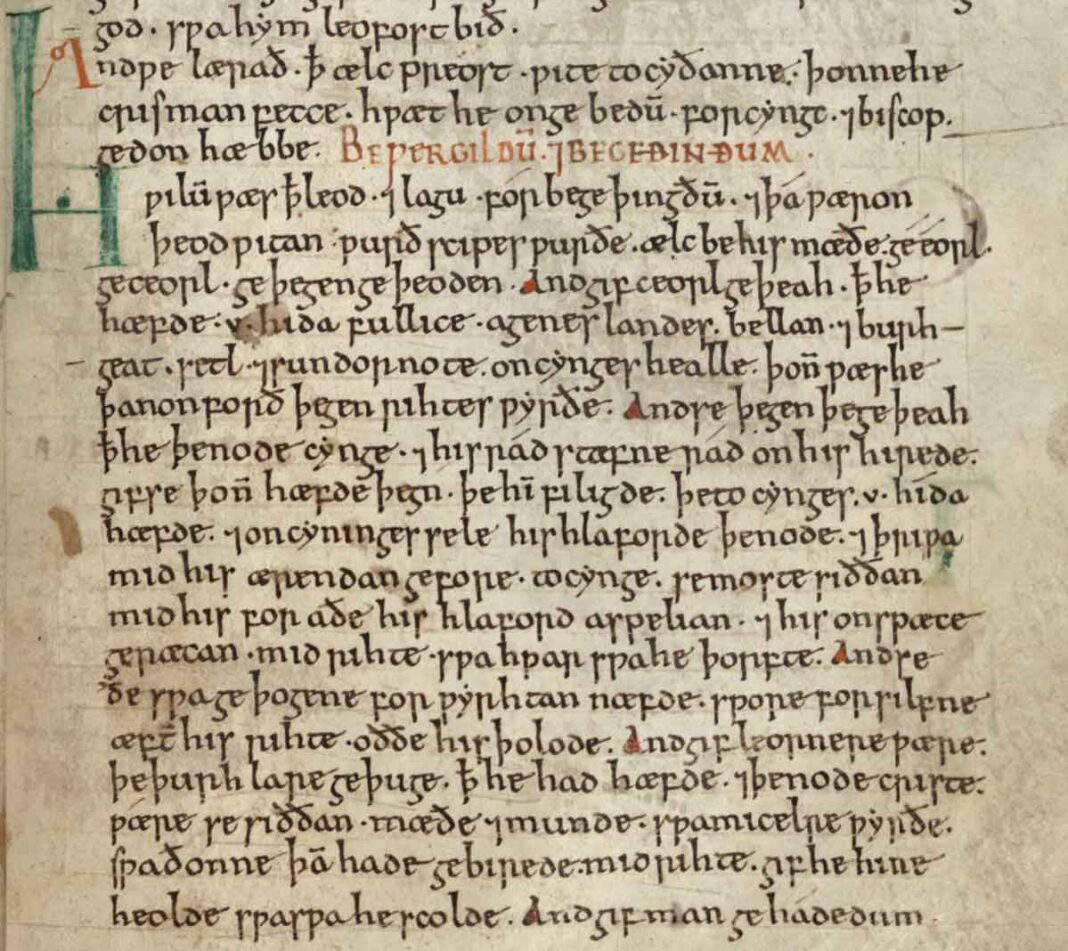 god. sƿa hym leofost bið.
And ƿe lærað. ꝥ ælc preost. ƿite to cyðanne. þonne he
crisman fecce. hƿæt he on gebedū. for cyngc. ⁊ biscop.
gedon hæbbe. BE ǷERGILDŪ. ⁊ BE GEÐINÐUM.
Hƿilū ƿæs ꝥ leod. ⁊ lagu. for be geþingðū. ⁊ þa ƿæron
þeodƿitan ƿurðscipes ƿurðe. ælc be his mæðe. ge eorl.
ge ceorl. ge þegen ge þeoden. And gif ceorl geþeah. ꝥ he
hæfde. v. hida fullice. agenes landes. bellan. ⁊ burh–
geat. setl. ⁊ sundornote. on cynges healle. þon̄ ƿæs he
þanon forð þegen rihtes ƿyrðe. And se þegen þe geþeah
ꝥ he þenode cynge. ⁊ his rád stæfne rád on his hirede.
gif se þon̄ hæfde þegn. þe hī filigde. þe to cynges. v. hida
hæfde. ⁊ on cyninges sele his hlaforde þenode. ⁊ þriƿa
mid his ærendan gefore. to cynge. se moste siððan
mid his for aðe his hlaford aspelian. ⁊ his onspæce
geræcan. mid rihte. sƿa hƿar sƿa he þorfte. And se
ðe sƿa geþogene forƿyrhtan næfde. sƿore for silfne
æft̄ his rihte. oððe his þolode. And gif leornere ƿære.
þe þurh lare geþuge. ꝥ he had hæfde. ⁊ þenode criste.
ƿære se siððan. mæðe ⁊ munde. sƿa micelre ƿyrðe.
sƿa ðonne þā hade gebirede. mid rihte. gif he hine
heolde sƿa sƿa he scolde. And gif man gehadedum